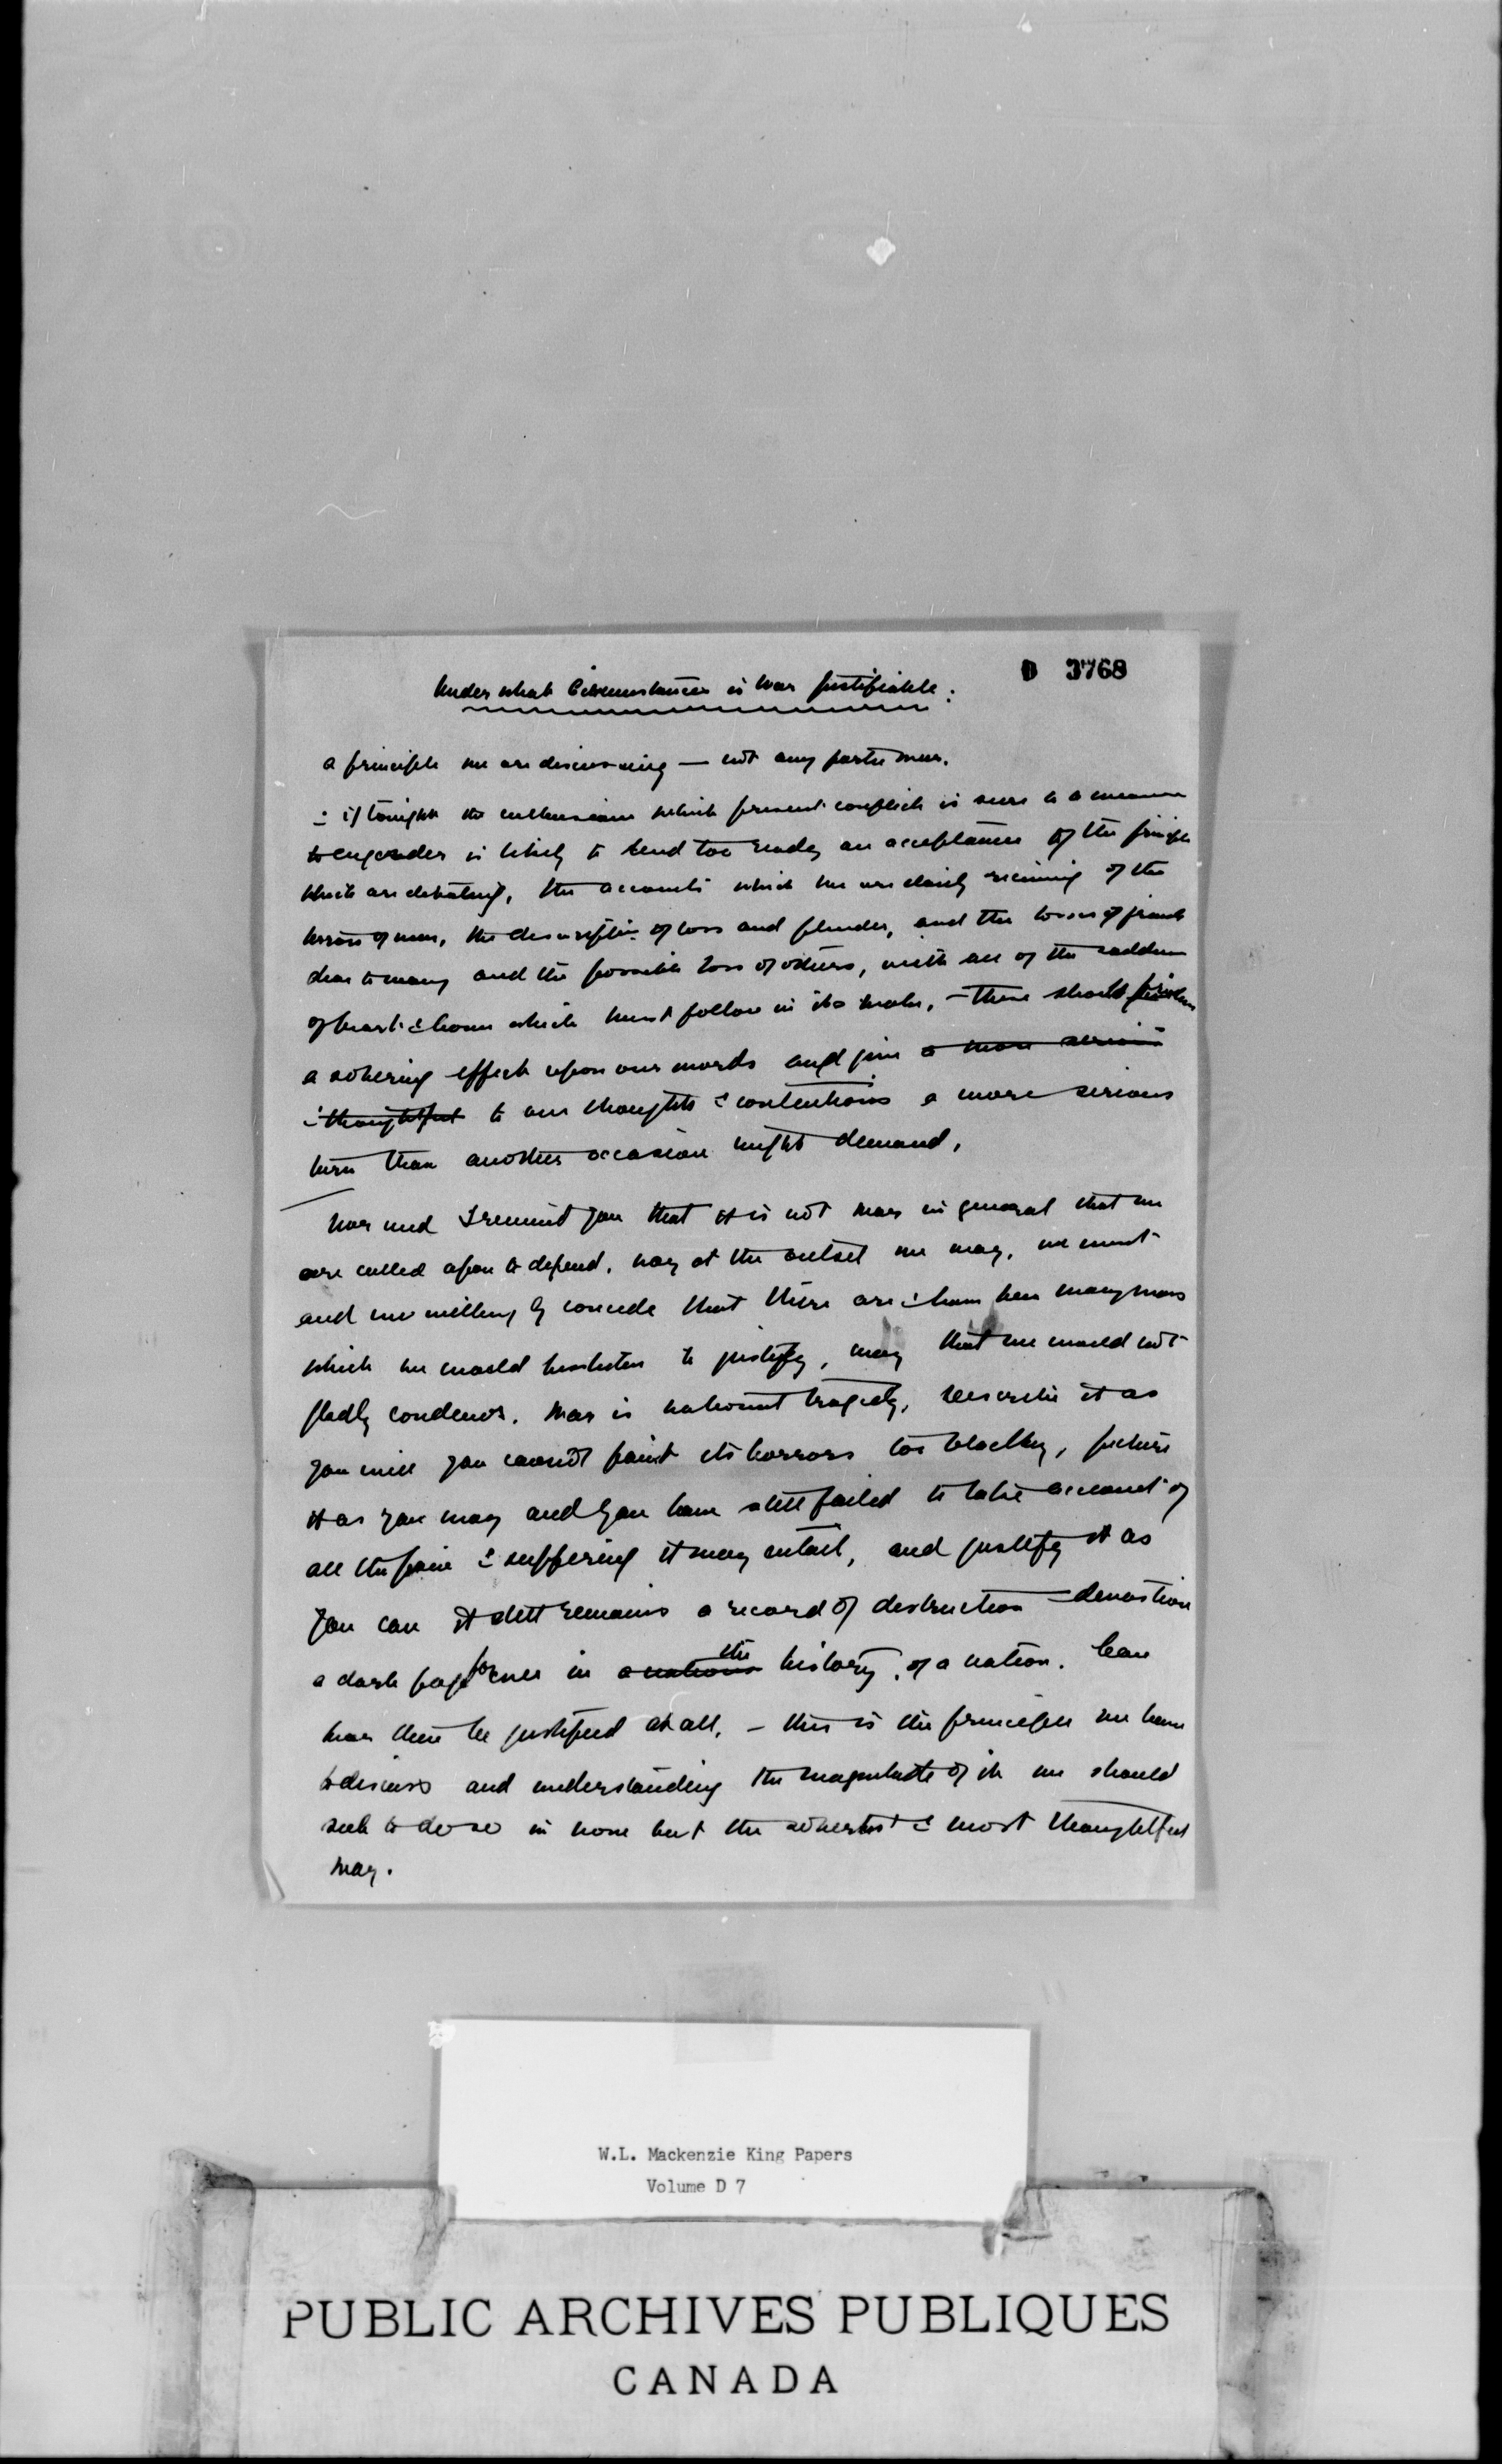 D 3768
Under what Circumstances is War Justifiable:
a principle we are discussing — not any partic war.
& if tonight the enthusiasm which present conflict is sure in a measure
to engender is likely to lend too ready an acceptance of the principle
which are debating, the accounts which we are daily receiving of the
terrors of war, the description of loss and plunder, and the losses of friends
dear to many and the possible loss of others, with all of the sadness
of heart & home which must follow in its wake, — these should
a sobering effect upon our words and give a more serious
& thoughtful to our thoughts & contentions a more serious
turn than another occasion might demand,
Nor need I remind you that it is not war in general that we
are called upon to defend. nay at the outset we may, we must
and we willingly concede that there are & have been many wars
which we would hesitate to justify, nay that we would not
gladly condemn. War is national tragedy, describe it as
you will you cannot paint its horrors too blackly, picture
it as you may and you have still failed to take account of
all the pain & suffering it may entail, and justify it as
you can it still remains a record of destruction & devastion
a dark page forever in a nations the history of a nation. Can
war then be justified at all, — this is the principle we have
to discuss and understanding the magnitude of it we should
seek to do so in none but the soberest & most thoughtful
way.
W.L. Mackenzie King Papers
Volume D 7
PUBLIC ARCHIVES PUBLIQUES
CANADA